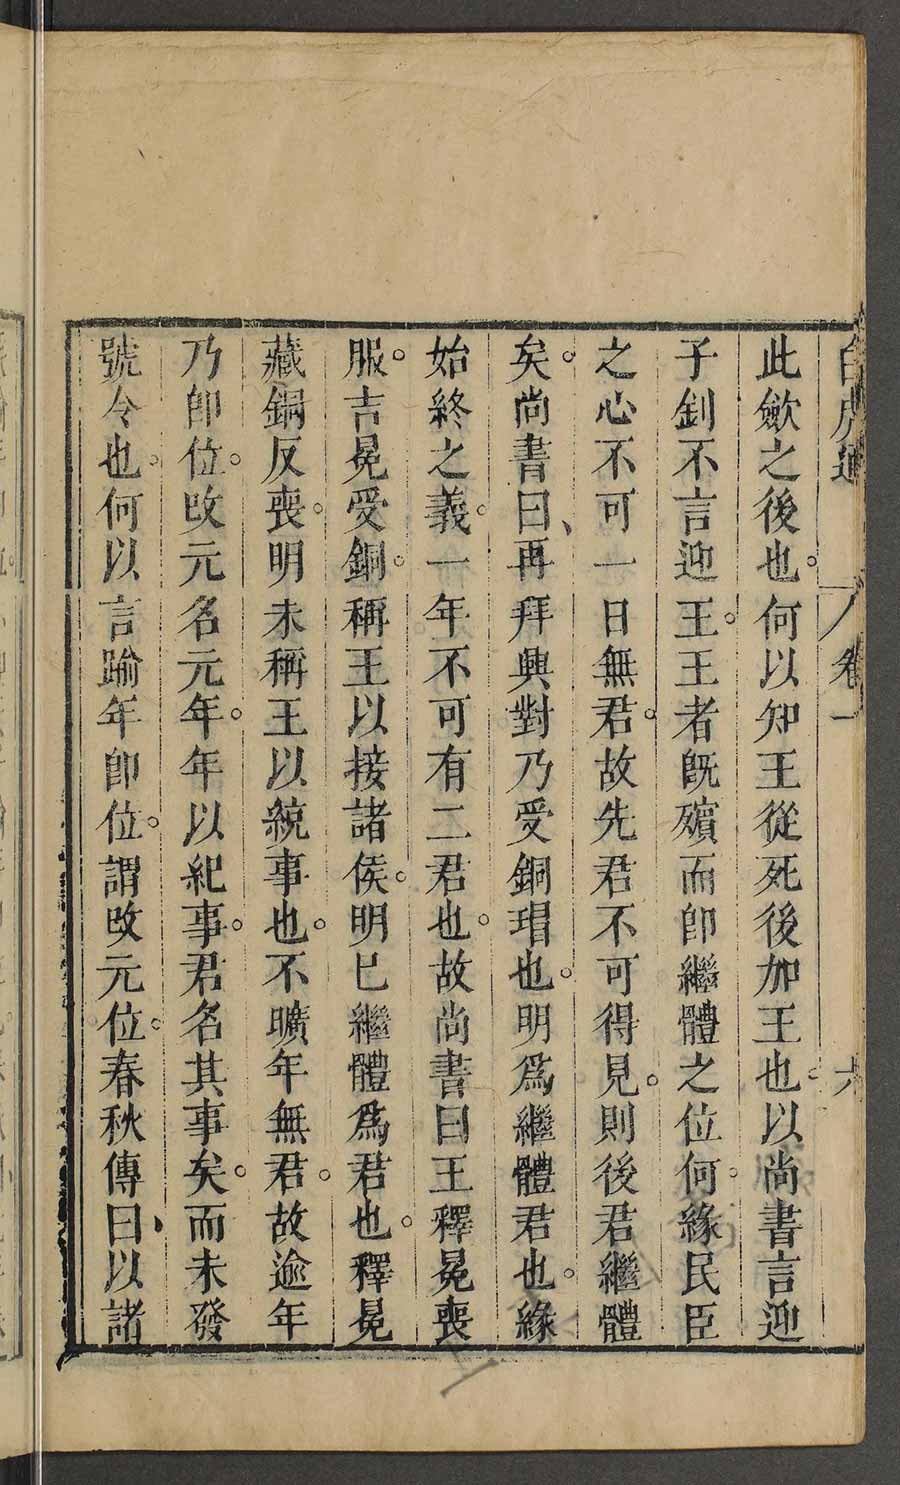 白虎通 卷一 六
此斂之後也。何以知王從死後加王也。以尚書言迎
子釗不言迎王。王者既殯而卽繼體之位何。緣民臣
之心不可一日無君。故先君不可得見。則後君繼體
矣。尚書曰、再拜興對乃受銅瑁也。明爲繼體君也。緣
始終之義。一年不可有二君也。故尚書曰王釋冕喪
服。吉冕受銅。稱王以接諸侯。明已繼體爲君也。釋冕
藏銅反喪。明未稱王以統事也。不曠年無君。故逾年
乃卽位。改元名元年。年以紀事。君名其事矣。而未發
號令也。何以言踰年卽位。謂改元位。春秋傳曰、以諸